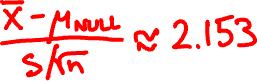 x̄ - μ_NULL / S/√n ≈ 2.153